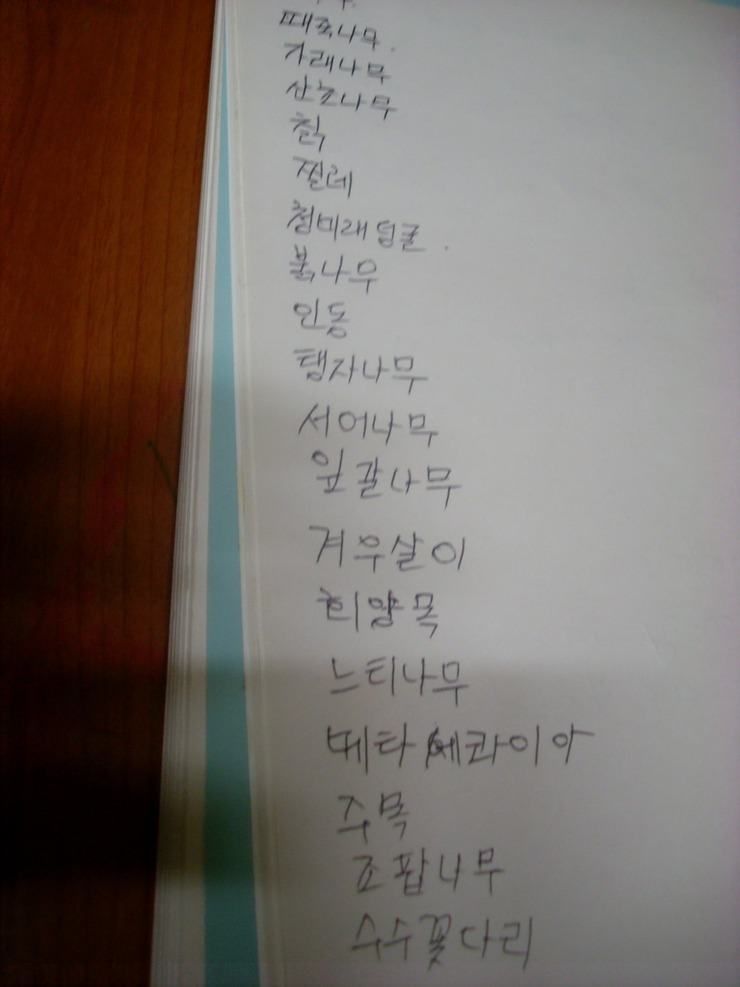 때죽나무.
가래나무
산초나무
칡
찔레
청미래덩굴.
붉나무
인동
탱자나무
서어나무
잎갈나무
겨우살이
회양목
느티나무
메타세콰이아
주목
조팝나무
수수꽃다리